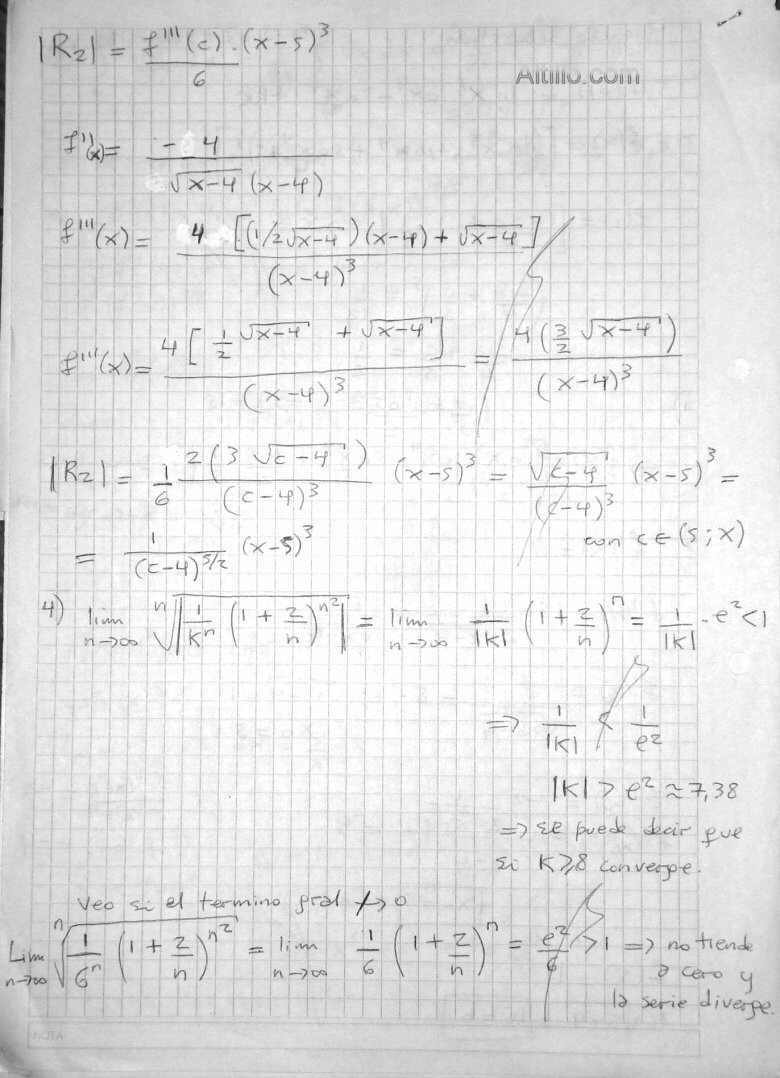 |R₂| = f'''(c) · (x-5)³ / 6
Altillo.com
f''(x) = -4 / (√(x-4) (x-4))
f'''(x) = 4 [(1/2√(x-4)) (x-4) + √(x-4)] / (x-4)³
f'''(x) = 4 [1/2 √(x-4) + √(x-4)] / (x-4)³ = 4 (3/2 √(x-4)) / (x-4)³
|R₂| = 1/6 2 (3 √(c-4)) / (c-4)³ (x-5)³ = √(c-4) / (c-4)³ (x-5)³ =
= 1 / (c-4)^(5/2) (x-5)³ con c ∈ (5; x)
4) lim n→∞ ⁿ√|1/Kⁿ (1 + 2/n)^(n²)| = lim n→∞ 1/|K| (1 + 2/n)ⁿ = 1/|K| · e² < 1
⇒ 1/|K| < 1/e²
|K| > e² ≈ 7,38
⇒ se puede decir que
si K ⩾ 8 converge.
Veo si el termino gral ↛ 0
Lim n→∞ ⁿ√(1/6ⁿ (1 + 2/n)^(n²)) = lim n→∞ 1/6 (1 + 2/n)ⁿ = e²/6 > 1 ⇒ no tiende
a cero y
la serie diverge.
NOTA